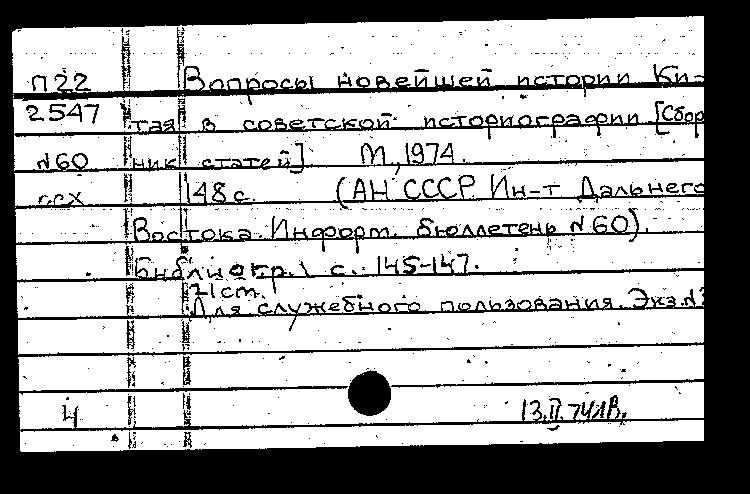 П22 Вопросы новейшей истории Ки-
2547 тая в советской историографии [Сбор
N60 ник статей] М., 1974.
148с. (АН СССР. Ин-т Дальнего
Востока. Информ. бюллетень N60).
Библиогр.: с. 145-147.
21 cm.
Для служебного пользования. Экз.N
4 13.II.74